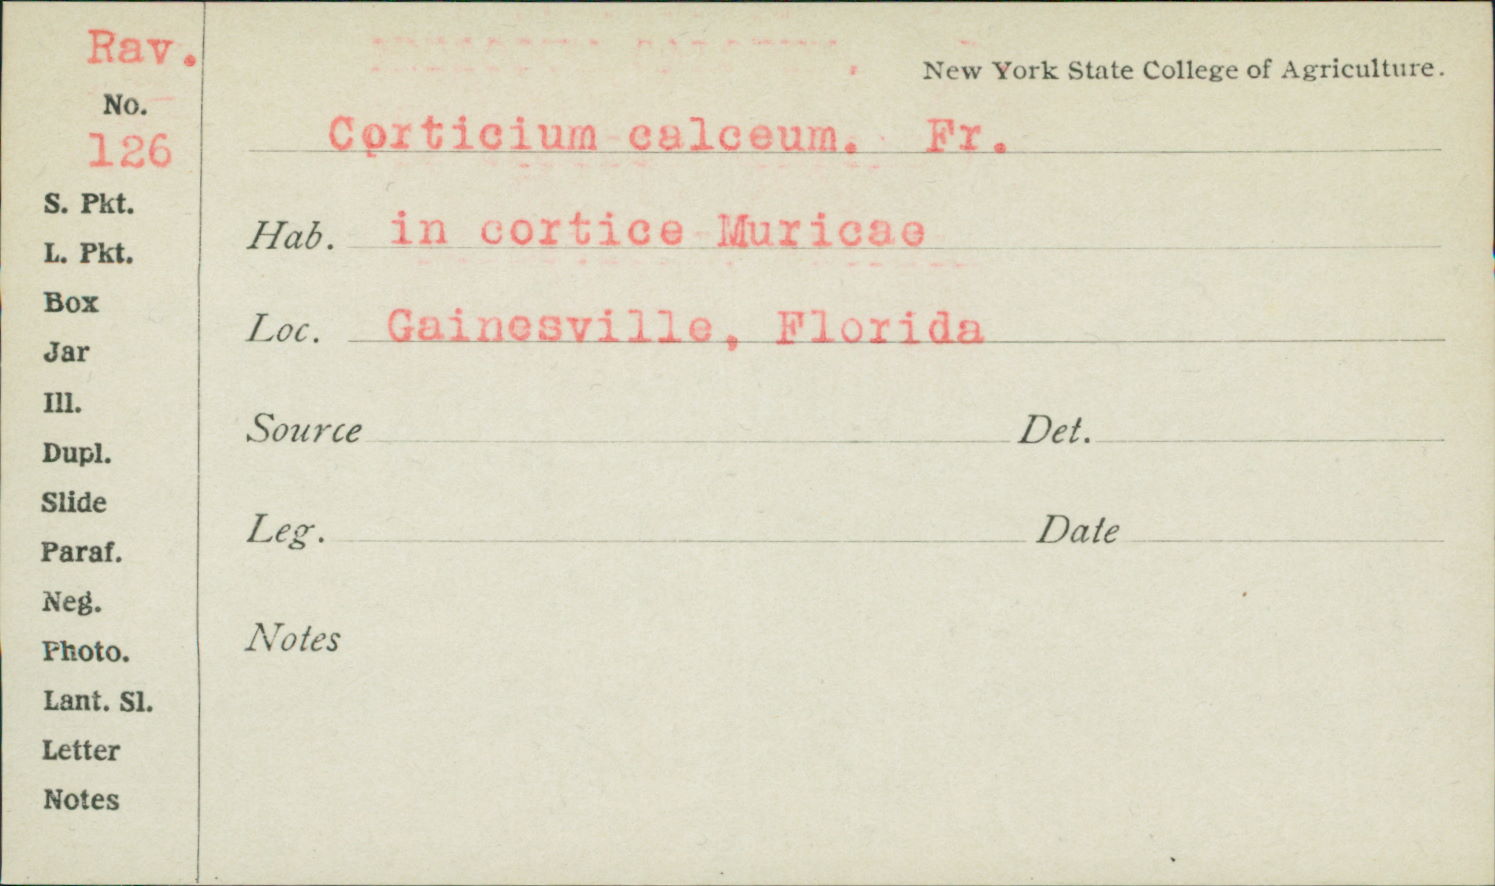 Rav.
No.
126
S. Pkt.
L. Pkt.
Box
Jar
Ill.
Dupl.
Slide
Paraf.
Neg.
Photo.
Lant. Sl.
Letter
Notes
New York State College of Agriculture.
Corticium calceum. Fr.
Hab. in cortice Muricae
Loc. Gainesville, Florida
Source Det.
Leg. Date
Notes